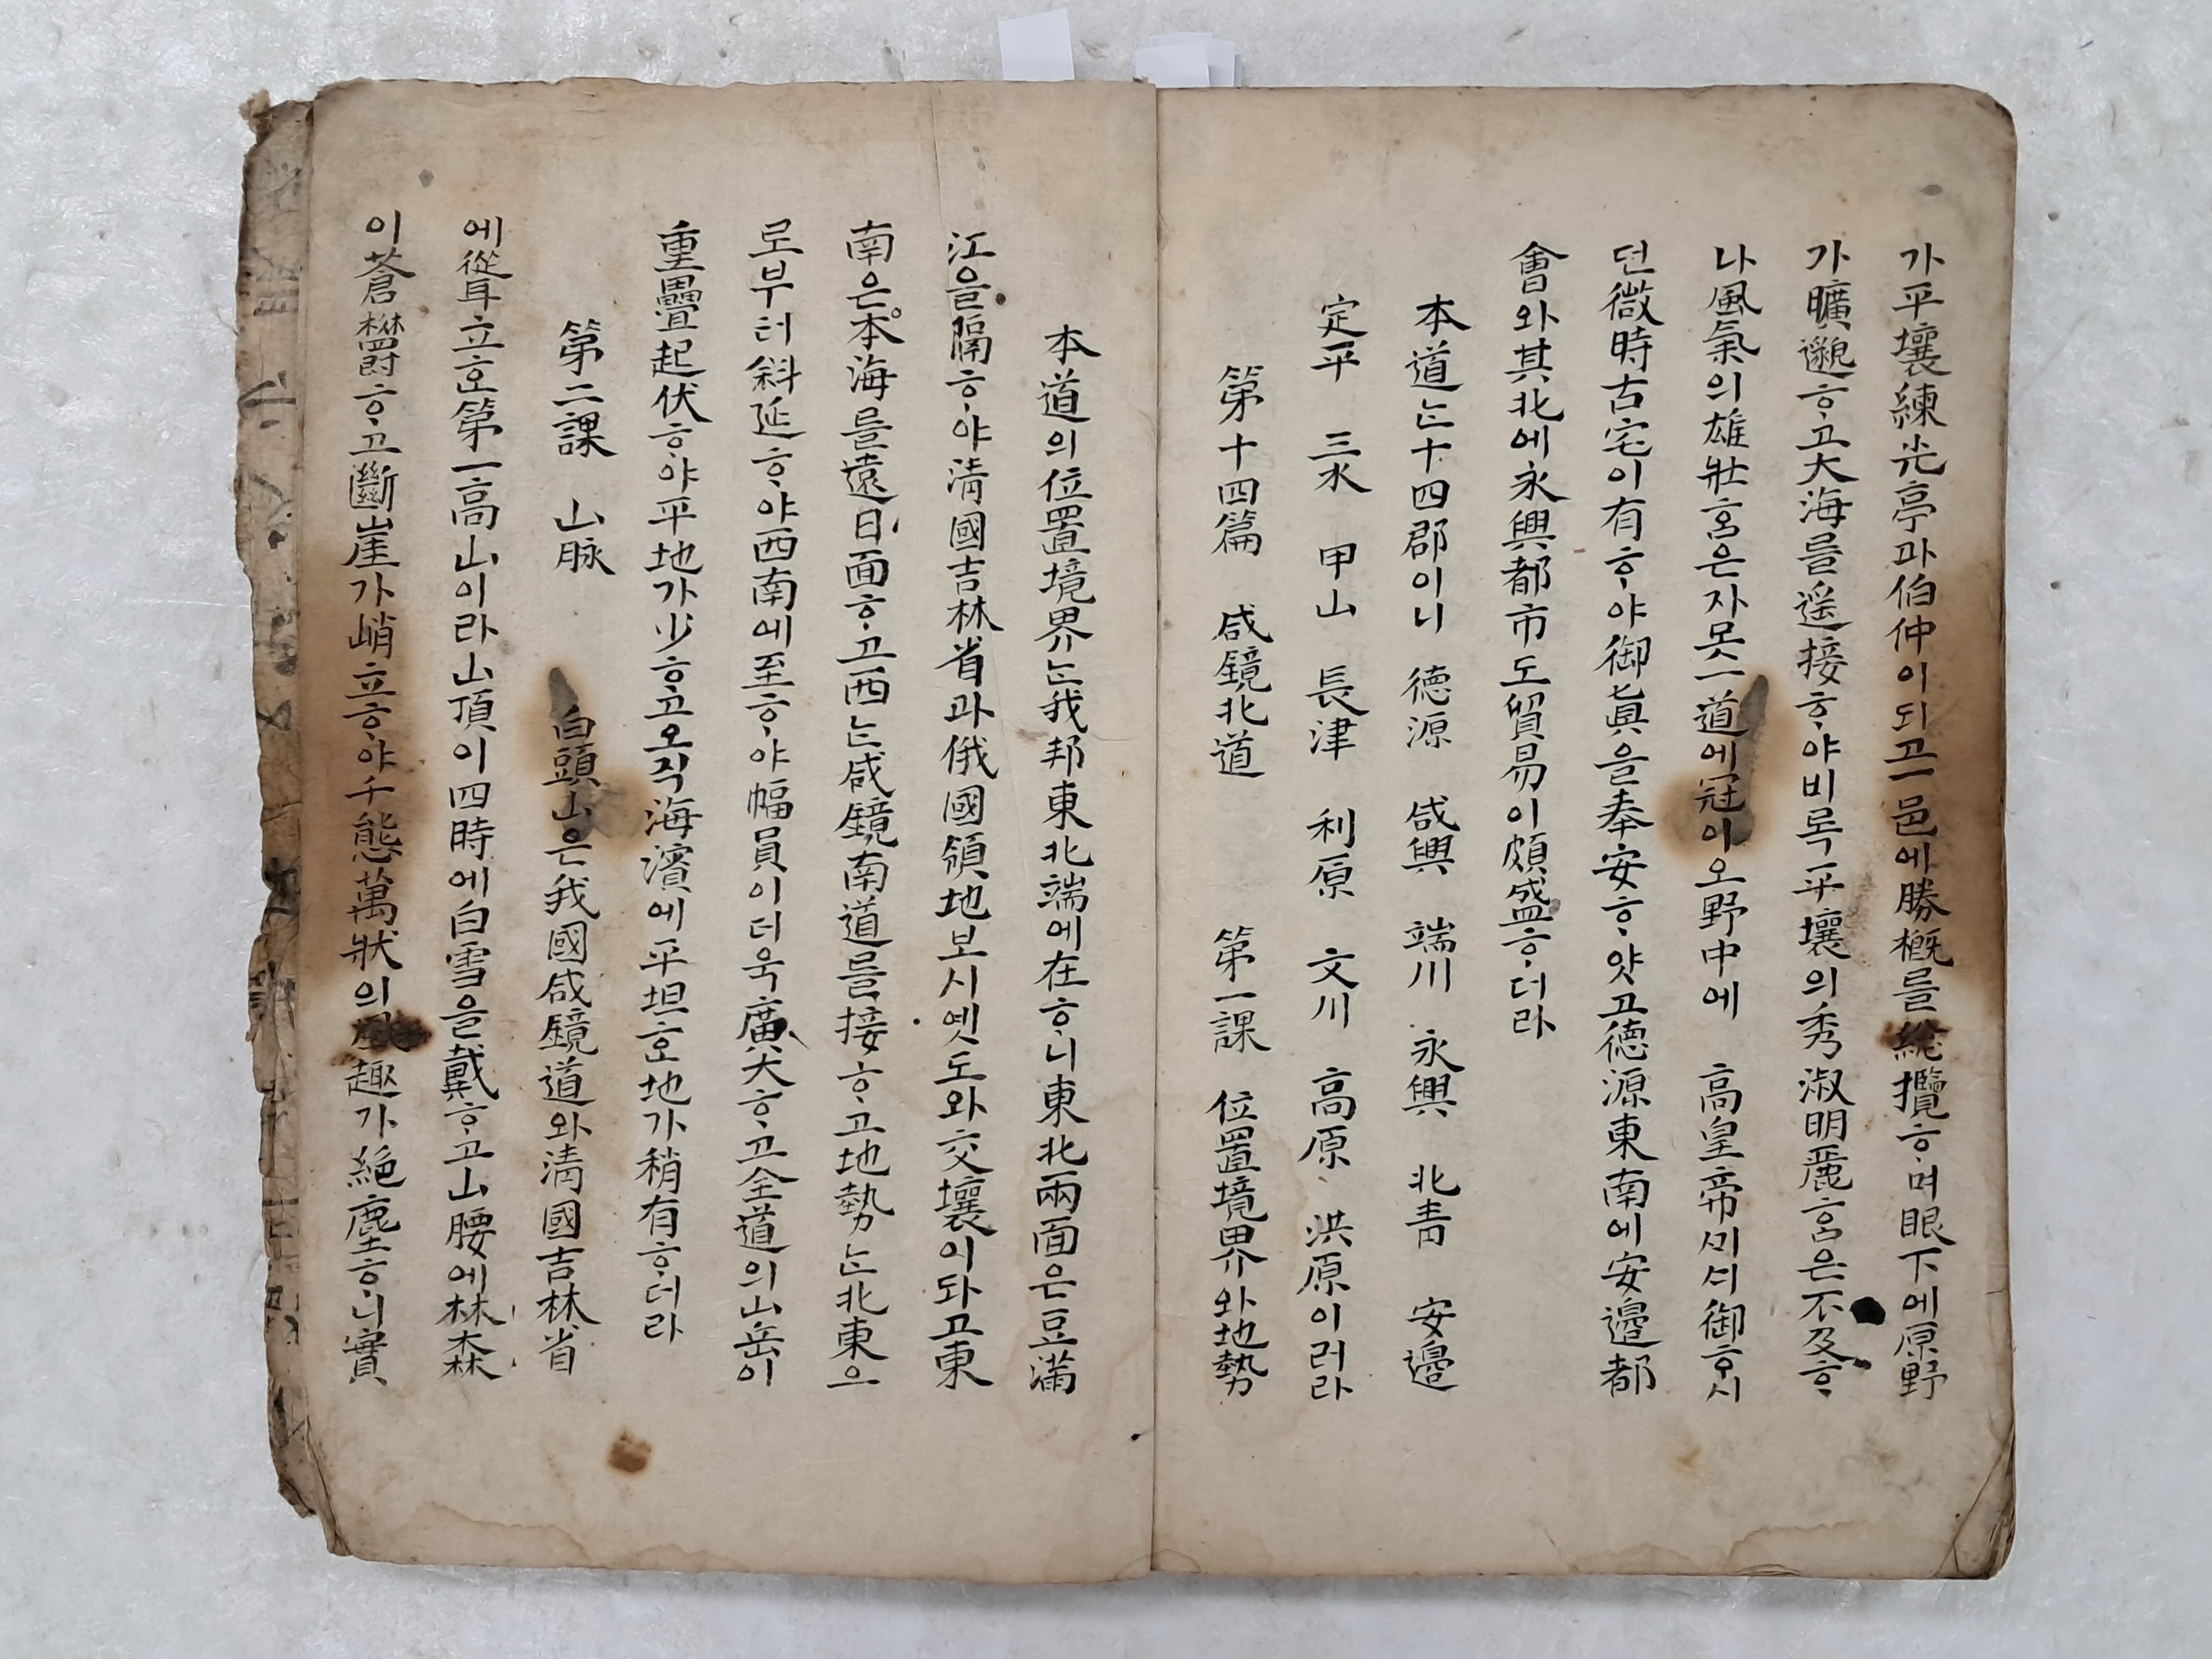 가平壤練光亭과伯仲이되고一邑에勝槪를總攬ᄒᆞ며眼下에原野
가曠邈ᄒᆞ고大海를遥接ᄒᆞ야비록平壤의秀淑明麗홈은不及ᄒᆞ
나風氣의雄壯홈은자못一道에冠이오野中에 高皇帝ᄭᅴ셔御ᄒᆞ시
던微時古宅이有ᄒᆞ야御眞을奉安ᄒᆞ얏고德源東南에安邊都
會와其北에永興都市도貿易이頗盛ᄒᆞ더라
本道ᄂᆞᆫ十四郡이니 德源 咸興 端川 永興 北青 安邊
定平 三水 甲山 長津 利原 文川 高原 洪原이러라
第十四篇 咸鏡北道 第一課 位置境界와地勢
本道의位置境界ᄂᆞᆫ我邦東北端에在ᄒᆞ니東北兩面은豆滿
江을隔ᄒᆞ야淸國吉林省과俄國領地보시옛도와交壤이되고東
南은本海를遠日面ᄒᆞ고西ᄂᆞᆫ咸鏡南道를接ᄒᆞ고地勢ᄂᆞᆫ北東으
로부터斜延ᄒᆞ야西南에至ᄒᆞ야幅員이더욱廣大ᄒᆞ고全道의山岳이
重疊起伏ᄒᆞ야平地가少ᄒᆞ고오직海濱에平坦ᄒᆞᆫ地가稍有ᄒᆞ더라
第二課 山脉 白頭山은我國咸鏡道와淸國吉林省
에聳立ᄒᆞᆫ第一高山이라山頂이四時에白雪을戴ᄒᆞ고山腰에林森
이蒼欝ᄒᆞ고斷崖가峭立ᄒᆞ야千態萬狀의風趣가絶塵ᄒᆞ니實